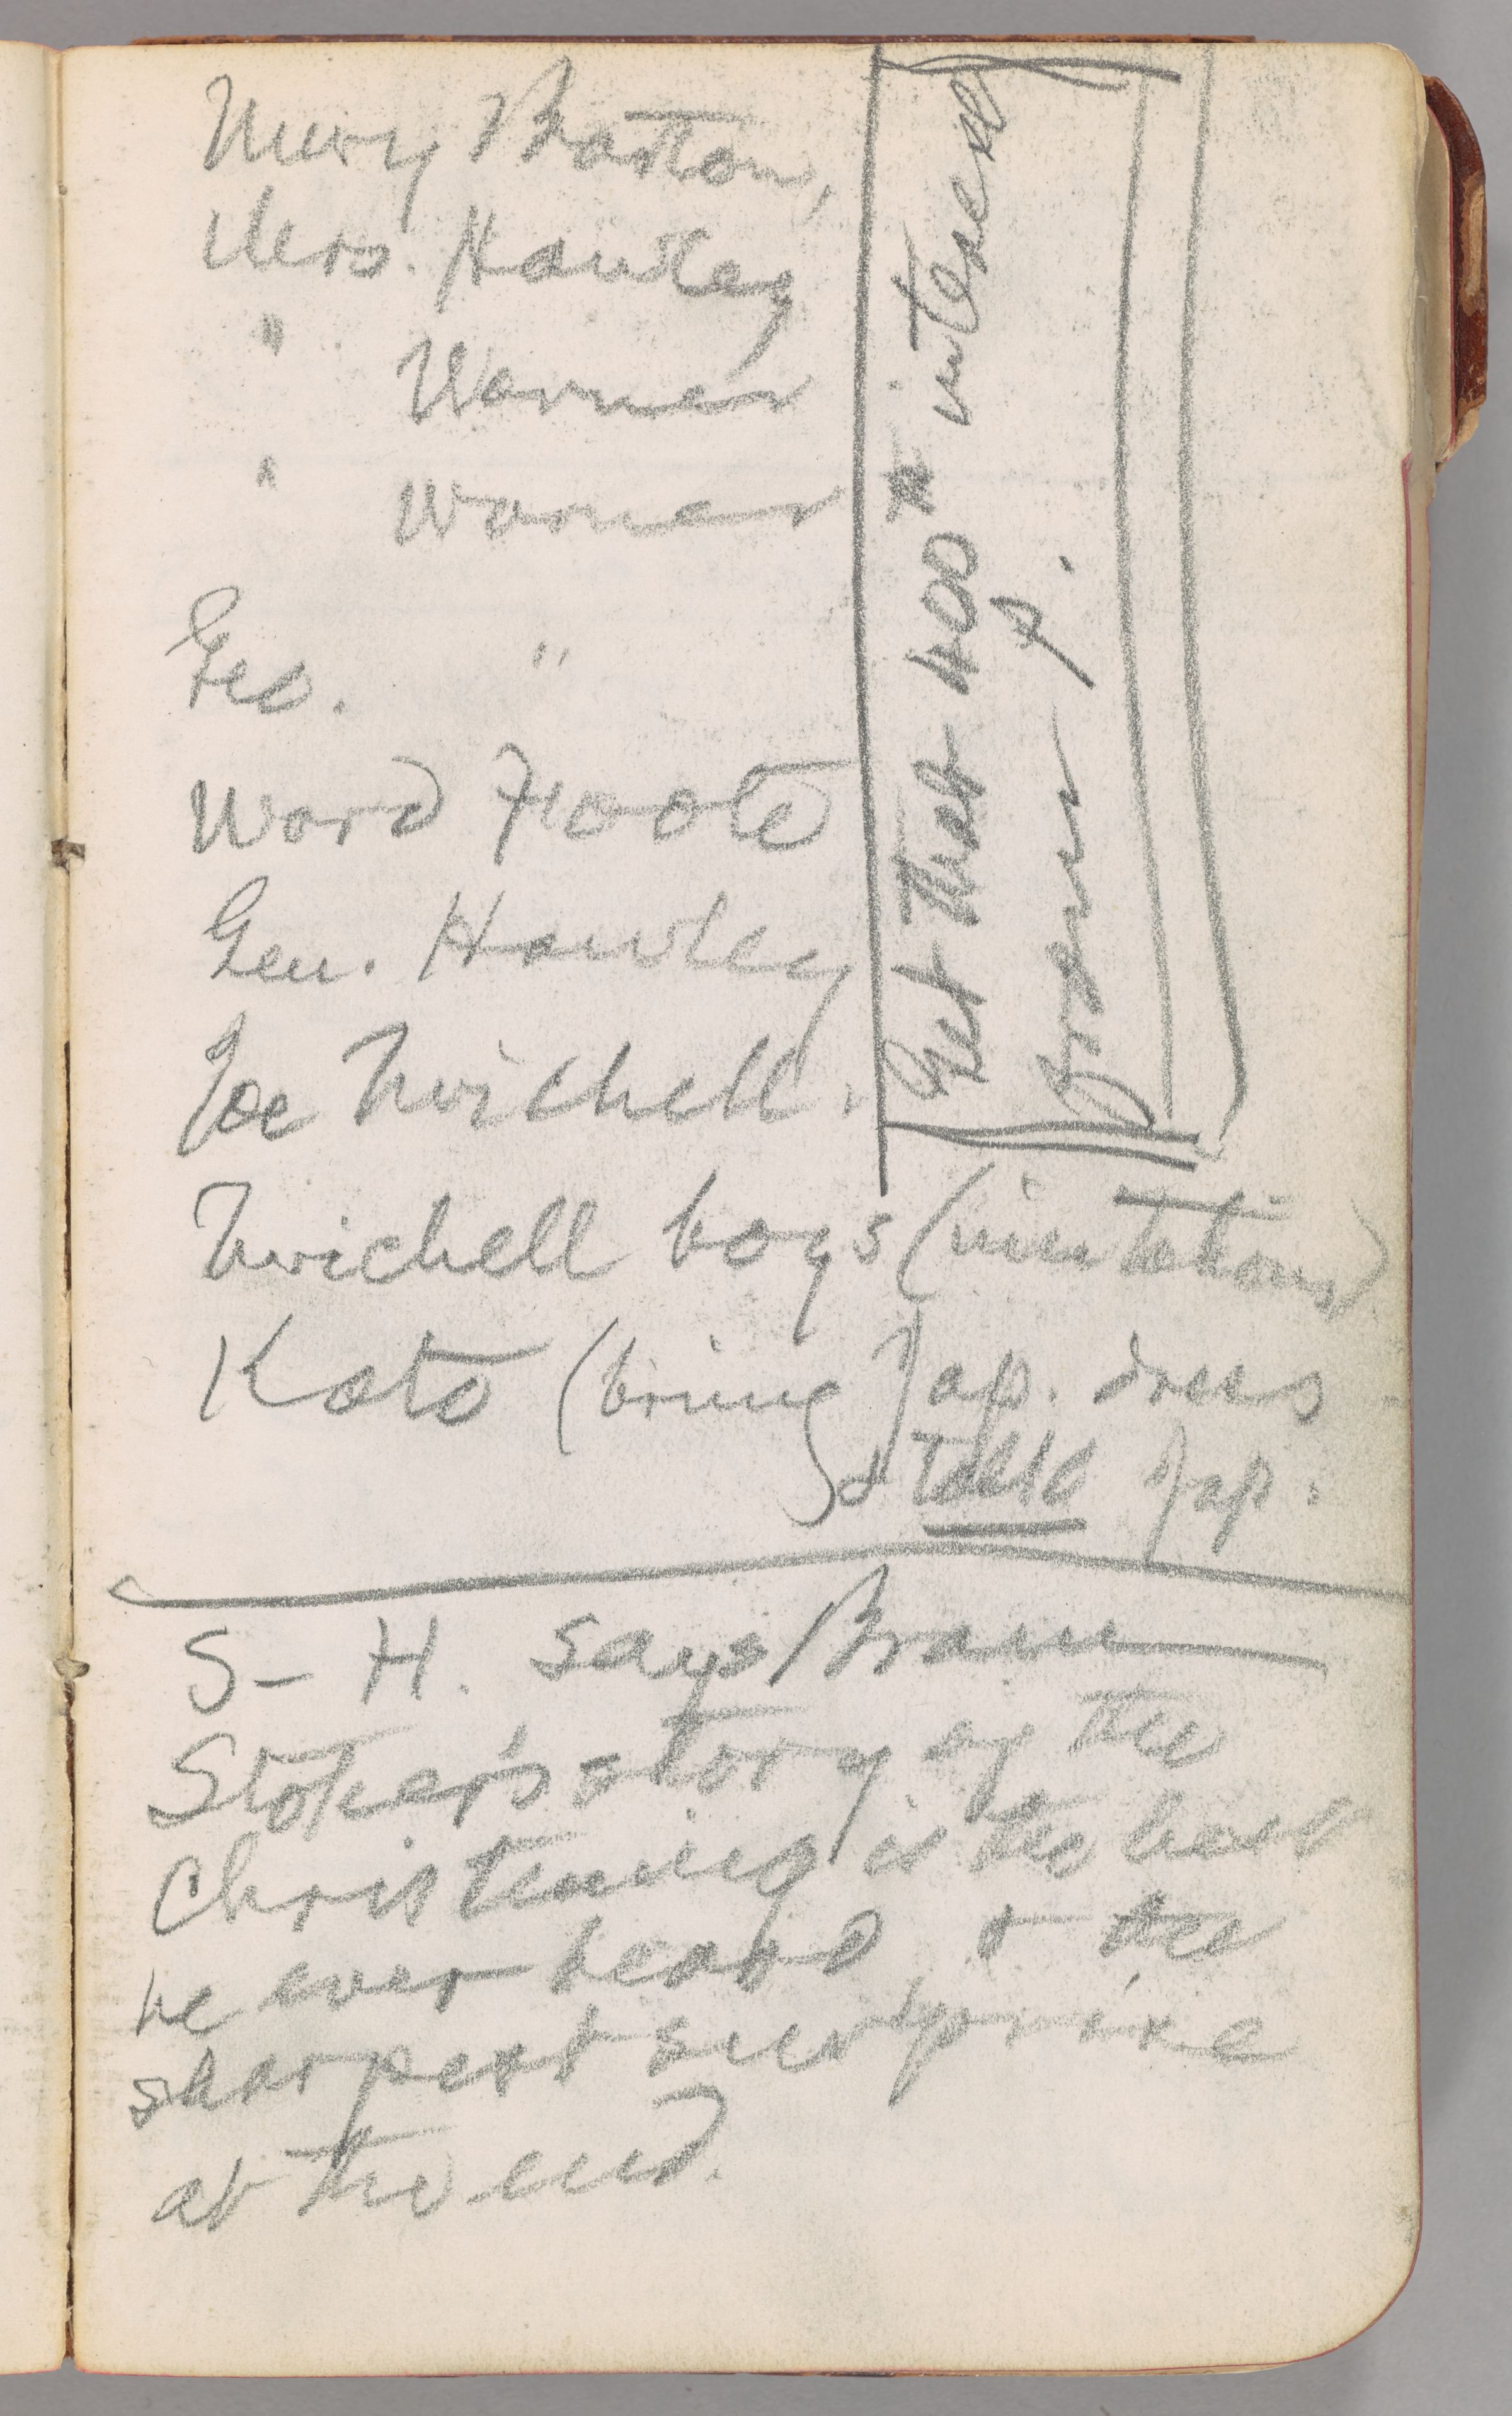 Mary Barton,
Mrs. Hawley
" Warner
" Warner
Geo. "
Ward Foote
Gen. Hawley
Joe Twichell.
Twichell boys (imitations)
Kato (bring Jap. dress
& talk Jap.
Get that 400 interest
from
S– H. says Bram
Stoker's story of the
Christening is the best
he ever heard, & the
sharpest surprise
at the end.